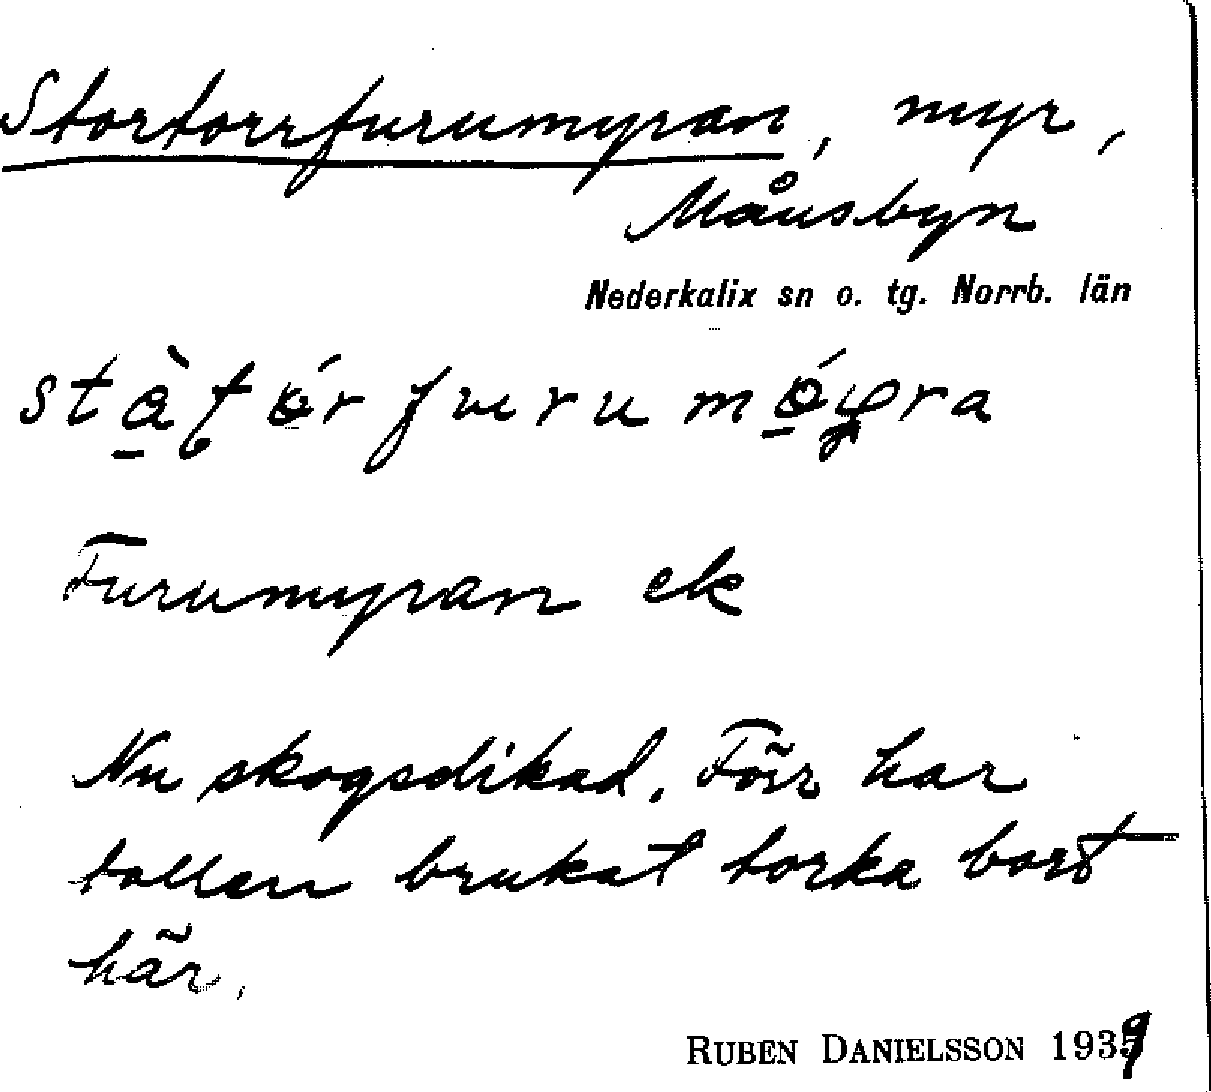 Stortorrfurumyran, myr,
Månsbyn
Nederkalix sn o. tg. Norrb. län
Furumyran ek
Nu skogsdikad. Förr har
tallen brukat torka bort
här.
RUBEN DANIELSSON 1939